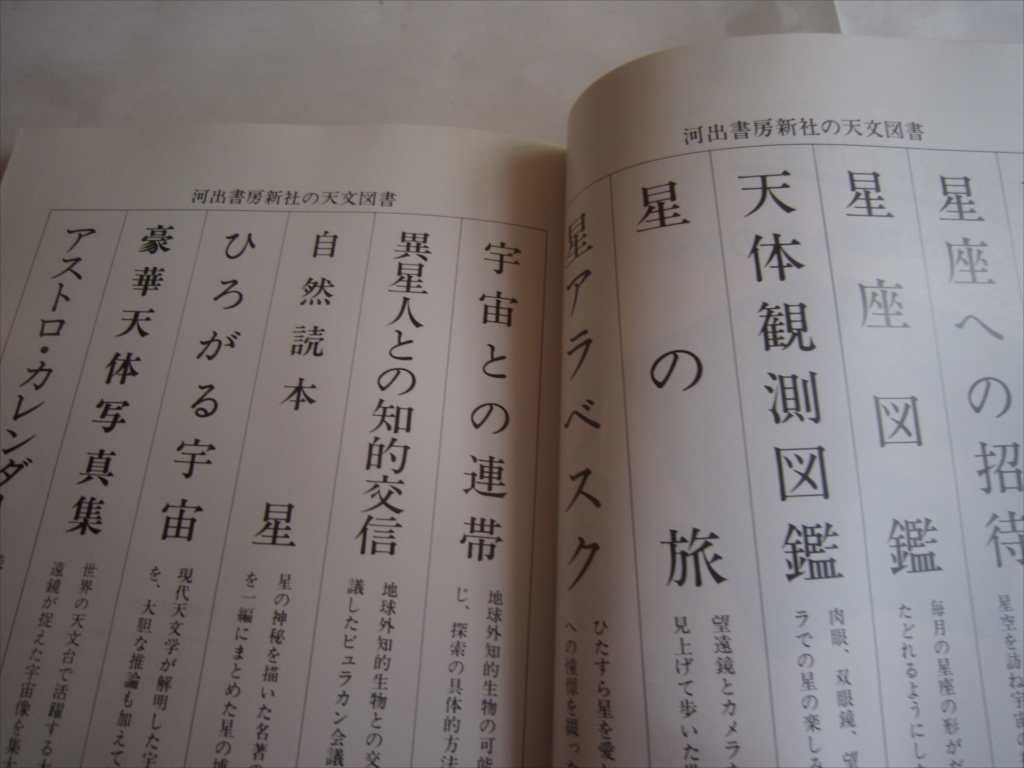 河出書房新社の天文図書
星座への招待
星空を訪ね宇宙の
星座図鑑
毎月の星座の形が
たどれるようにし
天体観測図鑑
肉眼、双眼鏡、望
ラでの星の楽し
星の旅
望遠鏡とカメラ
見上げて歩いた
星アラベスク
ひたすら星を愛
への憧憬を綴っ
河出書房新社の天文図書
宇宙との連帯
地球外知的生物の可能
じ、探索の具体的方法
異星人との知的交信
地球外知的生物との交
議したビュラカン会議
自然読本 星
星の神秘を描いた名著の
を一編にまとめた星の博
ひろがる宇宙
現代天文学が解明した宇
を、大胆な推論も加えて
豪華天体写真集
世界の天文台で活躍する
遠鏡が捉えた宇宙像を集
アストロ・カレンダー